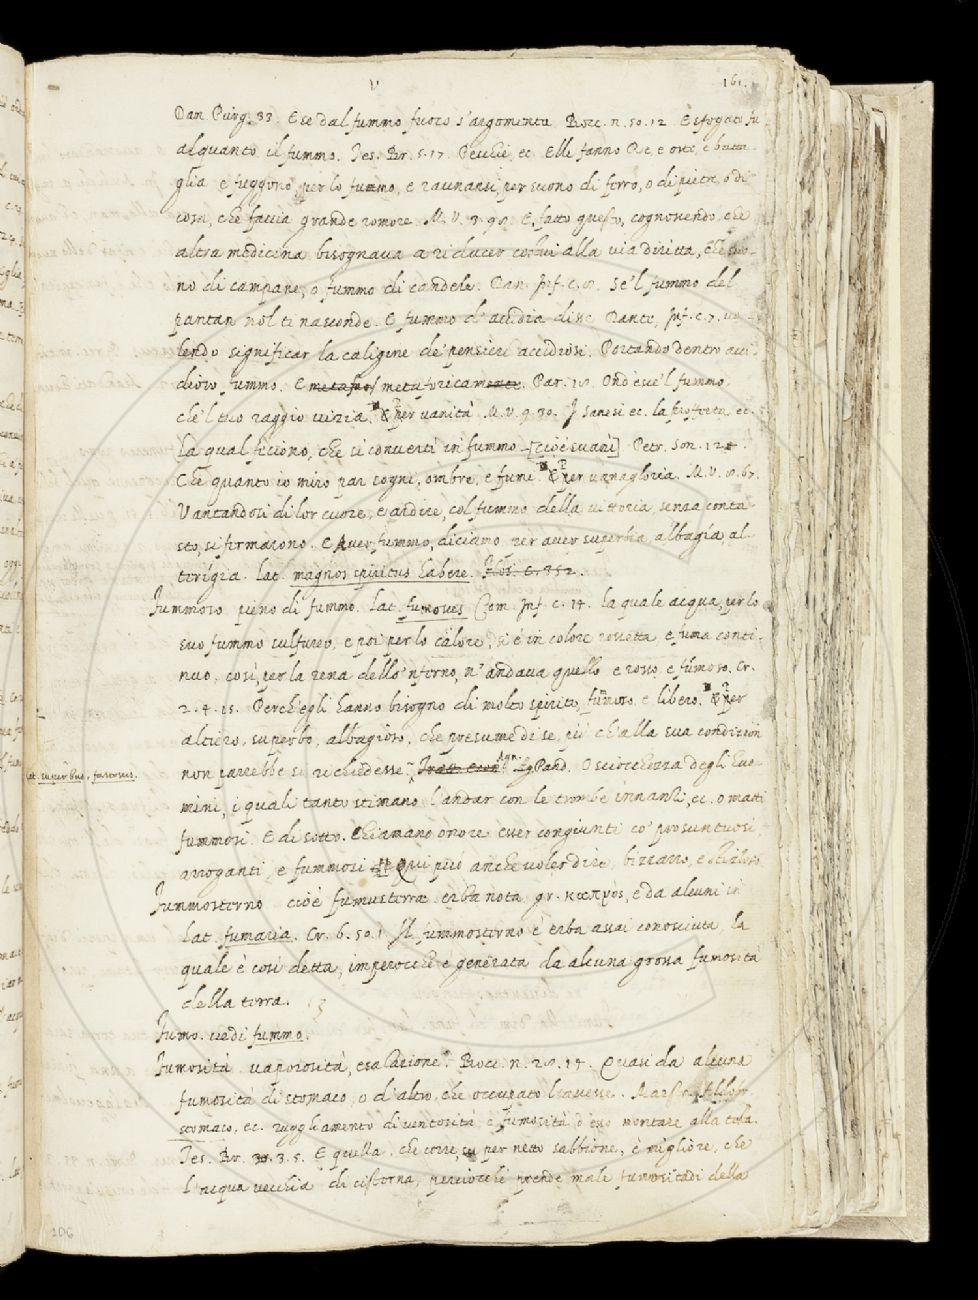 V
161.
Dan Purg. 33. E se dal fummo fuoco s'argomenta Bocc. n. 50. 12 E sfogato fu
alquanto il fummo. Tes. Br. 5. 17. Pecchie, ec. Elle fanno Re, e oste, e batta-
glia e fuggono, per lo fummo, e raunansi, per suono di ferro, o di pietra, o di
cosa, che faccia grande romore M. V. 3. 90. E, fatto questo, cognoscendo, che
altra medicina bisognava a riducer costui alla via diritta, che suo-
no di campane, o fummo di candele. Dan. Inf. c. 8. Se'l fummo del
pantan nol ti nasconde. E fummo d'accidia disse Dante, Inf. c. 7. vo-
lendo significar la caligine de' pensieri accidiosi. Portando dentro acci-
dioso fummo. E metafor metaforicamente. Par. 18. Ond'esce'l fummo,
che'l tuo raggio vizia. E per vanità M. V. 9. 30. I Sanesi ec. la profferta, ec.
La qual ficiono, che si convertì in fummo [cioè svanì] Petr. Son. 124.
Che quanto io miro par sogni, ombre, e fumi. E per vanagloria. M. V. 8. 67.
Vantandosi di lor cuore, e ardire, col fummo della vittoria, senza conta-
sto, si firmarono. E Aver fummo, diciamo per aver superbia, albagía, al-
terigia. Lat. magnos spiritus habere. Flos. c. 352.
Fummoso pieno di fummo. Lat. fumosus Com. Inf. c. 14. la quale acqua, per lo
suo fummo sulfureo, e poi per lo calore, si è in colore rossetta e fuma conti-
nuo. così, per la rena dello 'nferno, n'andava quello e rosso, e fumoso. Cr.
2. 4. 15. Perch'egli hanno bisogno di molto spirito, fummoso e libero. E per
altiero, superbo, albagioso, che presume di se, più ch'alla sua condizion
non parrebbe si richiedesse. Agn. Pand. O sciocchezza degli huo-
Lat. superbus, fastosus.
mini, i quali tanto stimano l'andar con le trombe innanzi, ec. o matti
fummosi. E di sotto. Chiamano onore esser congiunti co' prosuntuosi,
arroganti, e fummosi Qui può anche voler dire, bizzarro, e stizzoso
Fummosterno cioè fumusterrae erba nota gr. καπνος, e da alcuni in
Lat. fumaria. Cr. 6. 50. 1 Il fummosterno è erba assai conosciuta, la
quale è così detta, imperocchè è generata da alcuna grossa fumosità
della terra.
Fumo. vedi fummo.
Fumosità vaporosità, esalazione. Bocc. n. 28. 14. Quasi da alcuna
fumosità di stomaco, o d'altro, che occupato l'avesse. Allor
stomaco, ec. rugghiamento di ventosità, e fumosità, d'esso montare alla testa.
Tes. Br. 3. 5. E quella, che corre, per netto sabbione, è migliore, che
l'acqua vecchia di cisterna, perciocchè prende male fumositadi della
106